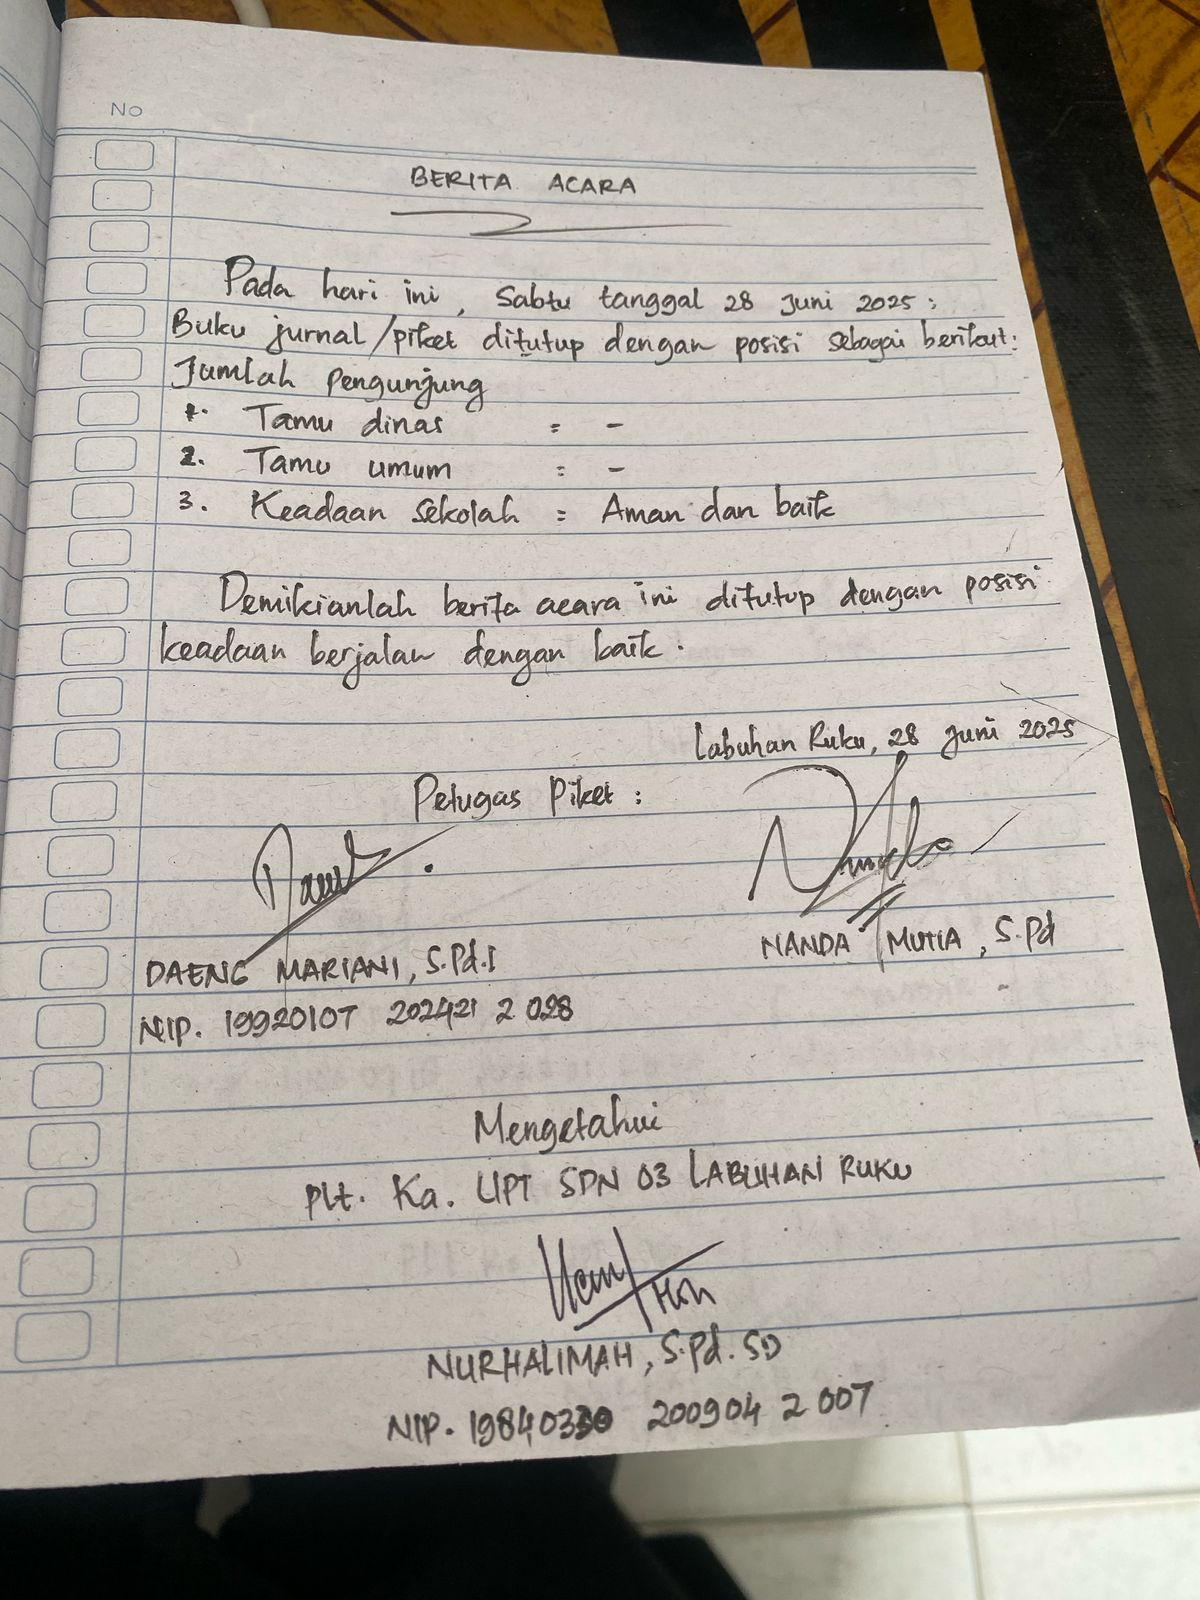 No
BERITA ACARA
Pada hari ini, Sabtu tanggal 28 Juni 2025 :
Buku jurnal/piket ditutup dengan posisi sebagai berikut:
Jumlah Pengunjung
1. Tamu dinas = -
2. Tamu umum = -
3. Keadaan sekolah = Aman dan baik
Demikianlah berita acara ini ditutup dengan posisi
keadaan berjalan dengan baik.
Labuhan Ruku, 28 Juni 2025
Petugas Piket :
DAENG MARIANI, S.Pd.I
NANDA MUTIA, S.Pd
NIP. 19920107 202421 2 028
-
Mengetahui
Plt. Ka. UPT SDN 03 LABUHAN RUKU
NURHALIMAH, S.Pd. SD
NIP. 19840330 200904 2 007